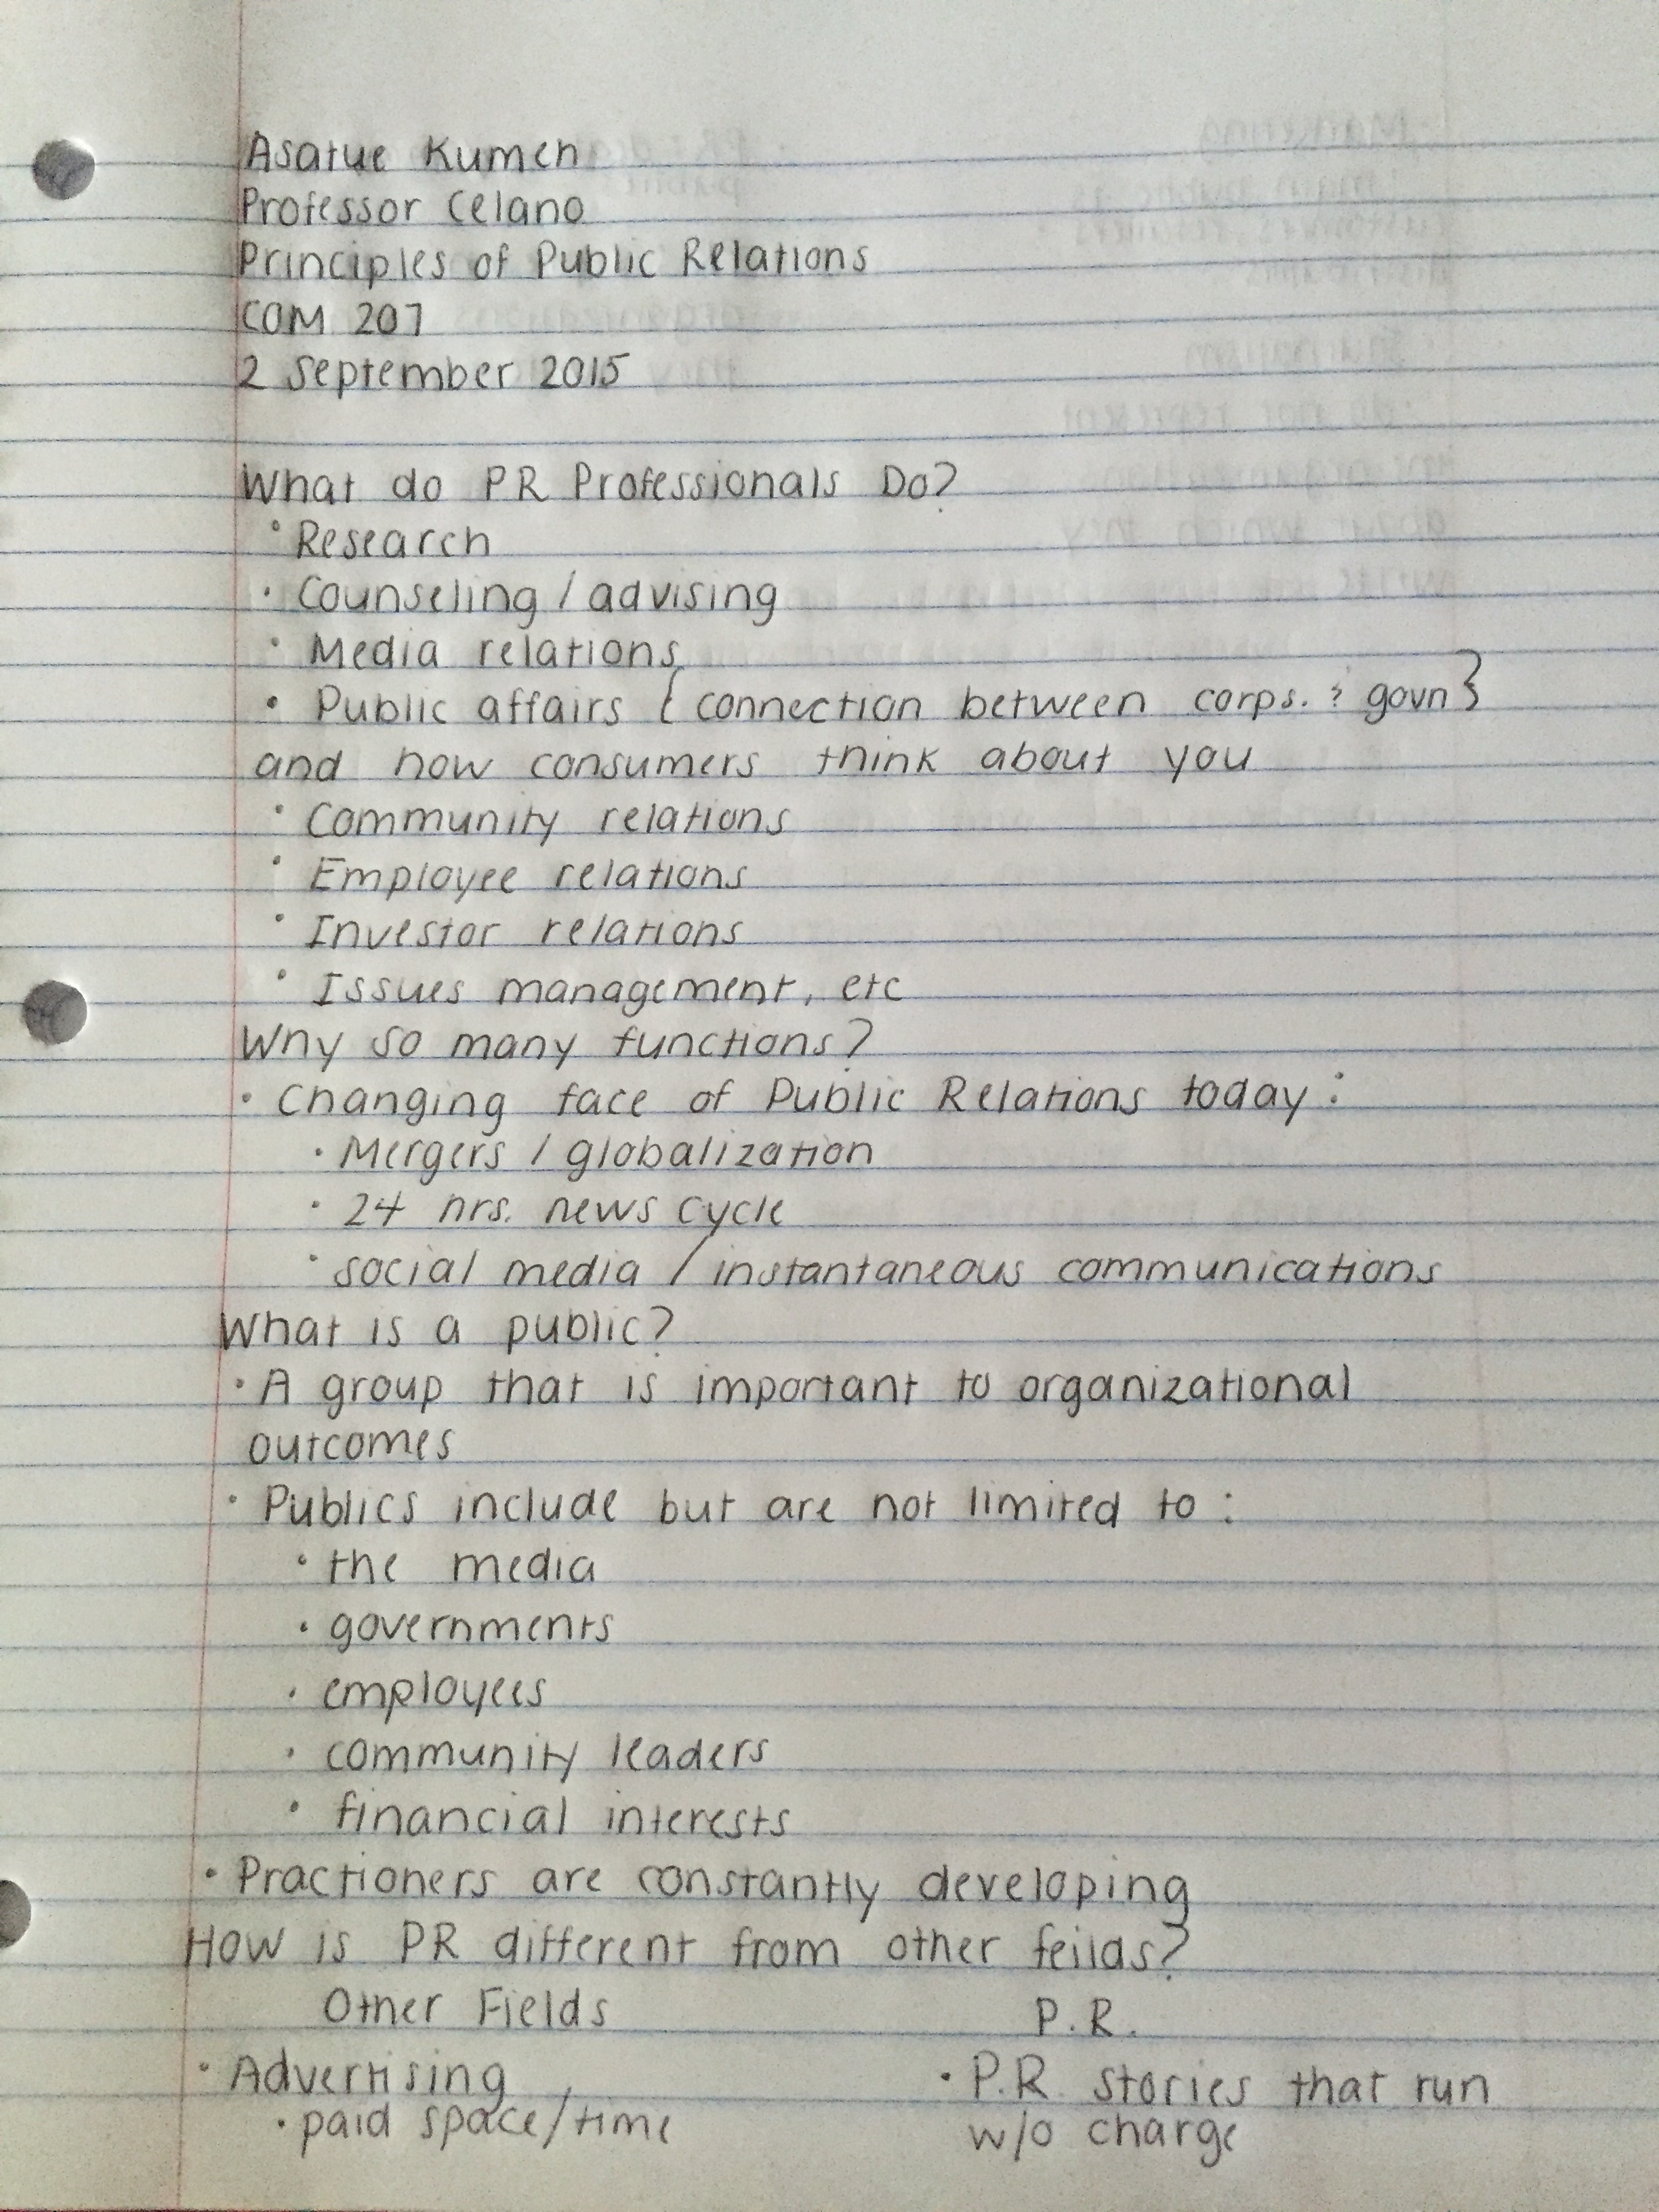 Asatue Kumeh
Professor Celano
Principles of Public Relations
COM 207
2 September 2015
What do PR Professionals Do?
• Research
• Counseling / advising
• Media relations
• Public affairs { connection between corps. & govn }
and how consumers think about you
• Community relations
• Employee relations
• Investor relations
• Issues management, etc
Why so many functions?
• Changing face of Public Relations today:
• Mergers / globalization
• 24 hrs. news cycle
• social media / instantaneous communications
What is a public?
• A group that is important to organizational
outcomes
• Publics include but are not limited to:
• the media
• governments
• employees
• community leaders
• financial interests
• Practioners are constantly developing
How is PR different from other feilds?
Other Fields P.R.
• Advertising • P.R. stories that run
• paid space/time w/o charge